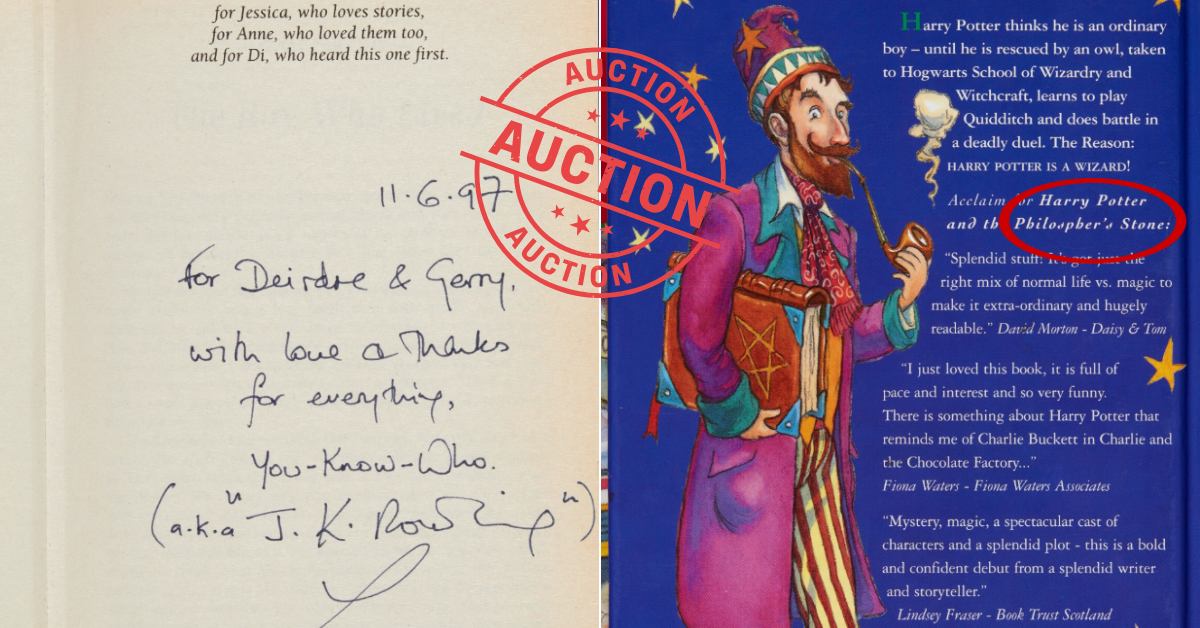 for Jessica, who loves stories,
for Anne, who loved them too,
and for Di, who heard this one first.
11.6.97
for Deirdre & Gerry,
with love & thanks
for everything,
You-Know-Who.
(a.k.a "J. K. Rowling")
AUCTION
AUCTION
AUCTION
Harry Potter thinks he is an ordinary
boy – until he is rescued by an owl, taken
to Hogwarts School of Wizardry and
Witchcraft, learns to play
Quidditch and does battle in
a deadly duel. The Reason:
HARRY POTTER IS A WIZARD!
Acclaim for Harry Potter
and the Philospher's Stone:
"Splendid stuff! It's got just the
right mix of normal life vs. magic to
make it extra-ordinary and hugely
readable." David Morton - Daisy & Tom
"I just loved this book, it is full of
pace and interest and so very funny.
There is something about Harry Potter that
reminds me of Charlie Buckett in Charlie and
the Chocolate Factory..."
Fiona Waters - Fiona Waters Associates
"Mystery, magic, a spectacular cast of
characters and a splendid plot - this is a bold
and confident debut from a splendid writer
and storyteller."
Lindsey Fraser - Book Trust Scotland